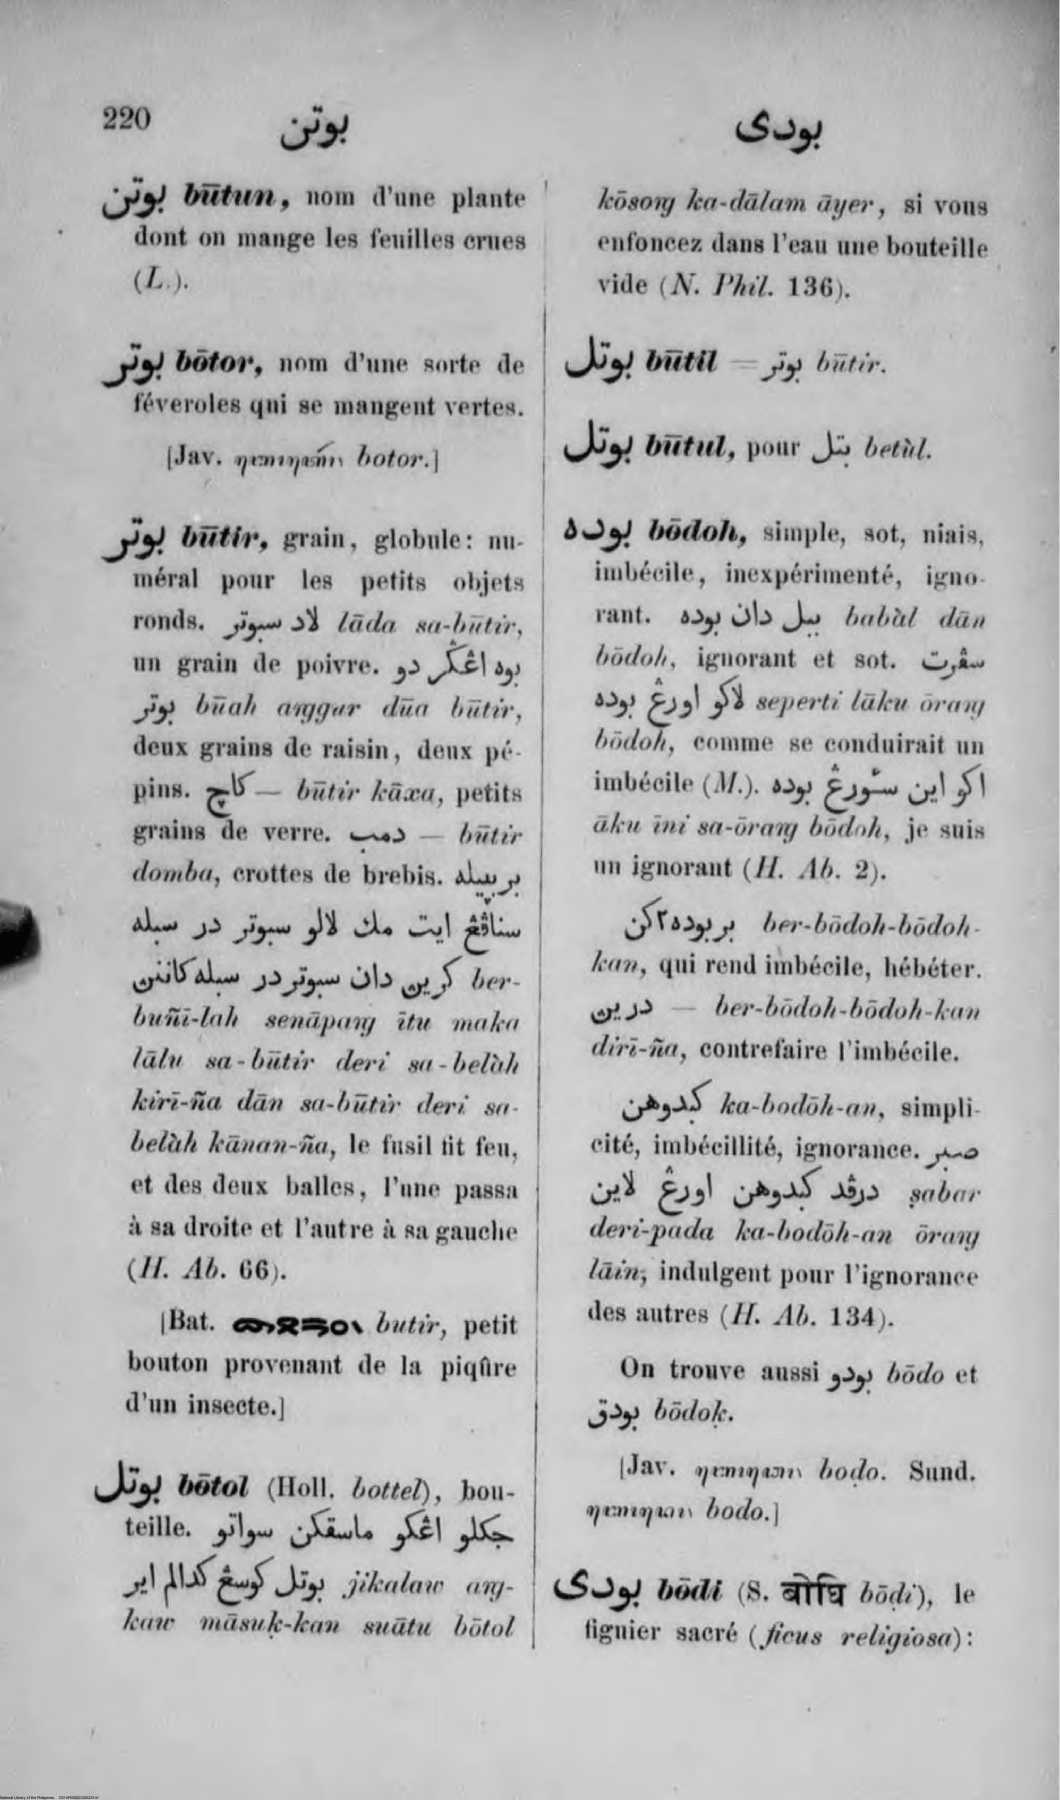 220
بوتن
بودى
بوتن būtun, nom d'une plante
dont on mange les feuilles crues
(L.).
بوتر bōtor, nom d'une sorte de
féveroles qui se mangent vertes.
[Jav. botor.]
بوتر būtir, grain, globule: nu-
méral pour les petits objets
ronds. لاد سبوتر lāda sa-būtir,
un grain de poivre. بوه اڠݢر دو
بوتر būah aŋggur dūa būtir,
deux grains de raisin, deux pé-
pins. کاچ — būtir kāxa, petits
grains de verre. دمب — būtir
domba, crottes de brebis. بربپيله
سناڤڠ ايت مك لالو سبوتر در سبله
کرين دان سبوتر در سبله کاننن ber-
buñī-lah senāpaŋ ītu maka
lālu sa-būtir deri sa-belàh
kirī-ña dān sa-būtir deri sa-
belàh kānan-ña, le fusil fit feu,
et des deux balles, l'une passa
à sa droite et l'autre à sa gauche
(H. Ab. 66).
[Bat. butir, petit
bouton provenant de la piqûre
d'un insecte.]
بوتل bōtol (Holl. bottel), bou-
teille. جكلو اڠكو ماسقكن سواتو
بوتل كوسڠ كدالم اير jikalaw aŋ-
kaw māsuḳ-kan suātu bōtol
kōsoŋ ka-dālam āyer, si vous
enfoncez dans l'eau une bouteille
vide (N. Phil. 136).
بوتل būtil = بوتر būtir.
بوتل būtul, pour بتل betùl.
بوده bōdoh, simple, sot, niais,
imbécile, inexpérimenté, igno-
rant. ببل دان بوده babàl dān
bōdoh, ignorant et sot. سڤرت
لاكو اورڠ بوده seperti lāku ōraŋ
bōdoh, comme se conduirait un
imbécile (M.). اكو اين سٔورڠ بوده
āku īni sa-ōraŋ bōdoh, je suis
un ignorant (H. Ab. 2).
بربوده٢كن ber-bōdoh-bōdoh-
kan, qui rend imbécile, hébéter.
درين — ber-bōdoh-bōdoh-kan
dirī-ña, contrefaire l'imbécile.
كبدوهن ka-bodōh-an, simpli-
cité, imbécillité, ignorance. صبر
درڤد كبدوهن اورڠ لاين ṣabar
deri-pada ka-bodōh-an ōraŋ
lāin, indulgent pour l'ignorance
des autres (H. Ab. 134).
On trouve aussi بودو bōdo et
بودق bōdoḳ.
[Jav. boḍo. Sund.
bodo.]
بودى bōdi (S. बोधि bōḍi), le
figuier sacré (ficus religiosa):